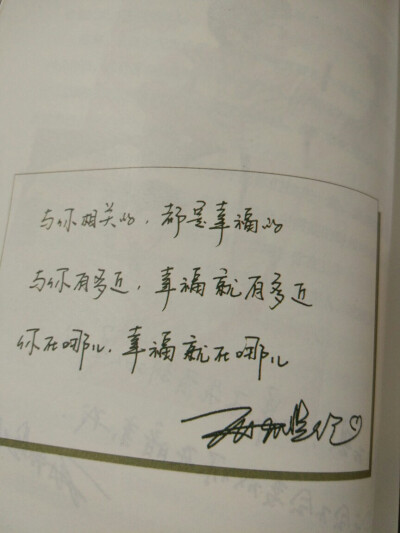 与你相关的，都是幸福的
与你有多近，幸福就有多近
你在哪儿，幸福就在哪儿